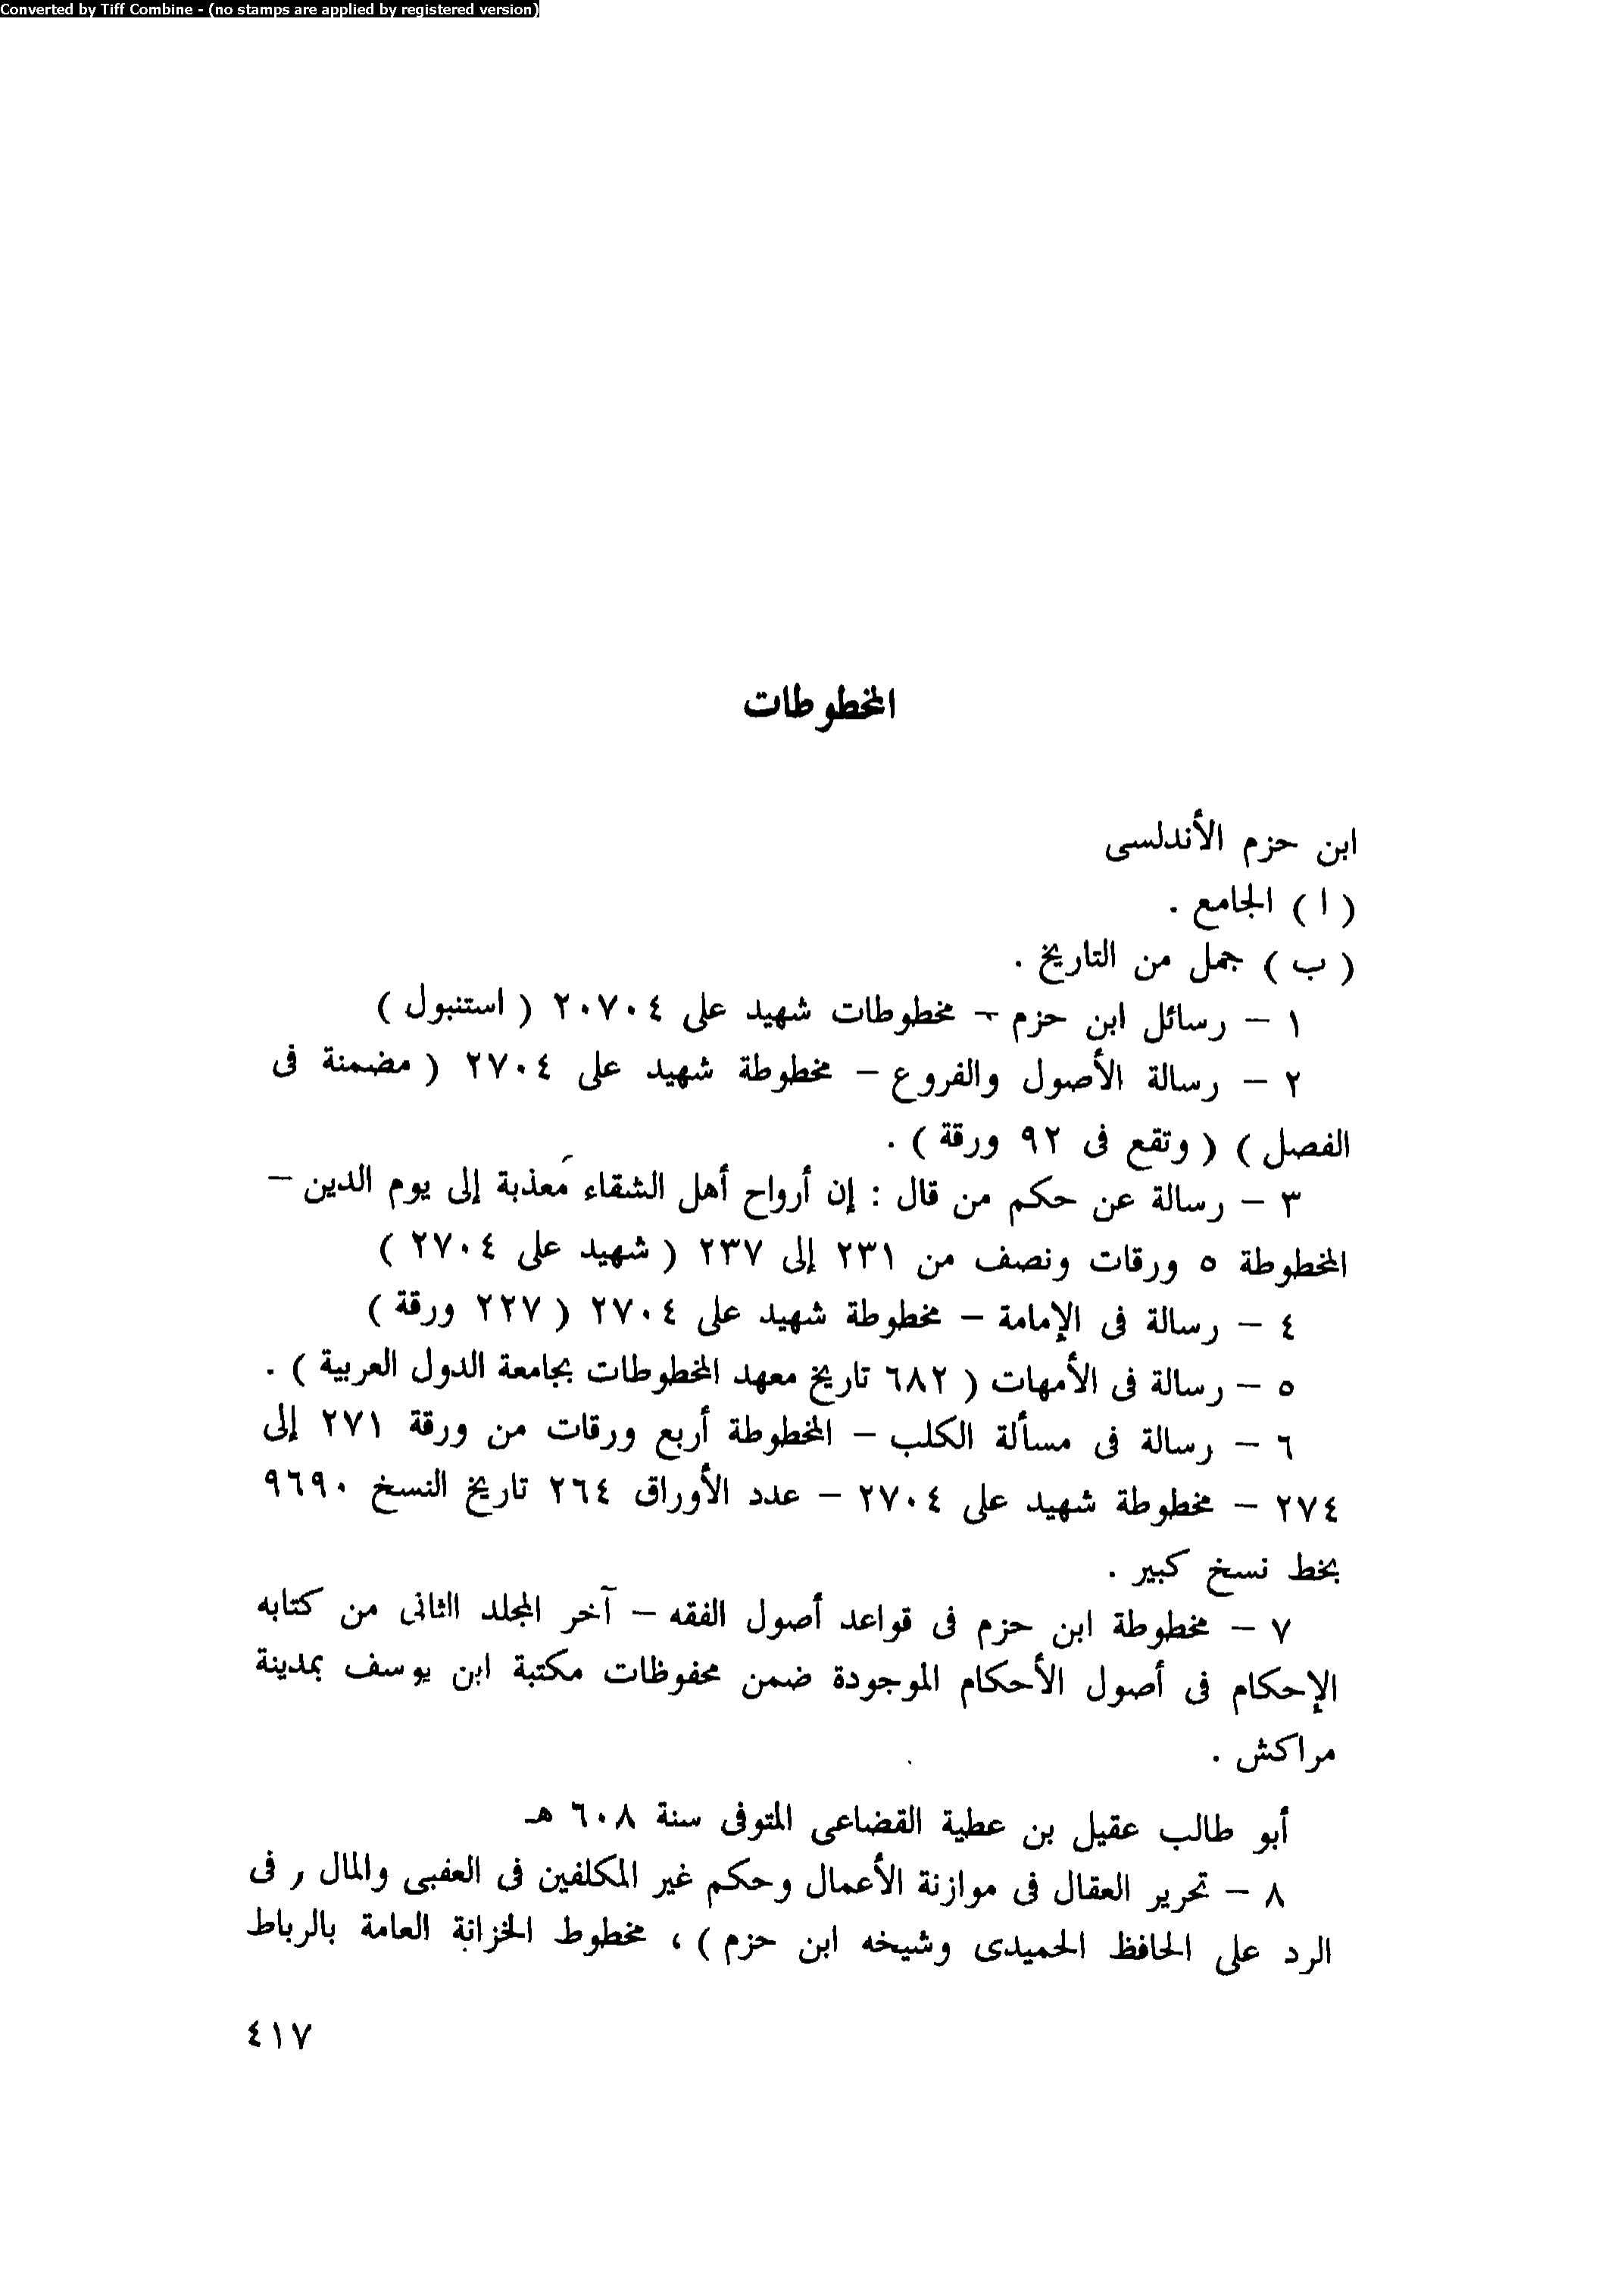 Converted by Tiff Combine - (no stamps are applied by registered version)
المخطوطات
ابن حزم الأندلسى
( ا ) الجامع .
( ب ) جمل من التاريخ .
١ – رسائل ابن حزم – مخطوطات شهيد على ٢٠٧٠٤ ( استنبول )
٢ – رسالة الأصول والفروع – مخطوطة شهيد على ٢٧٠٤ ( مضمنة فى
الفصل ) ( وتقع فى ٩٢ ورقة ) .
٣ – رسالة عن حكم من قال : إن أرواح أهل الشقاء مَعذبة إلى يوم الدين –
المخطوطة ٥ ورقات ونصف من ٢٣١ إلى ٢٣٧ ( شهيد على ٢٧٠٤ )
٤ – رسالة فى الإمامة – مخطوطة شهيد على ٢٧٠٤ ( ٢٢٧ ورقة )
٥ – رسالة فى الأمهات ( ٦٨٢ تاريخ معهد المخطوطات بجامعة الدول العربية ) .
٦ – رسالة فى مسألة الكلب – المخطوطة أربع ورقات من ورقة ٢٧١ إلى
٢٧٤ – مخطوطة شهيد على ٢٧٠٤ – عدد الأوراق ٢٦٤ تاريخ النسخ ٩٦٩٠
بخط نسخ كبير .
٧ – مخطوطة ابن حزم فى قواعد أصول الفقه – آخر المجلد الثانى من كتابه
الإحكام فى أصول الأحكام الموجودة ضمن محفوظات مكتبة ابن يوسف بمدينة
مراكش .
أبو طالب عقيل بن عطية القضاعى المتوفى سنة ٦٠٨ هـ
٨ – تحرير العقال فى موازنة الأعمال وحكم غير المكلفين فى العفبى والمال ر فى
الرد على الحافظ الحميدى وشيخه ابن حزم ) ، مخطوط الخزانة العامة بالرباط
٤١٧